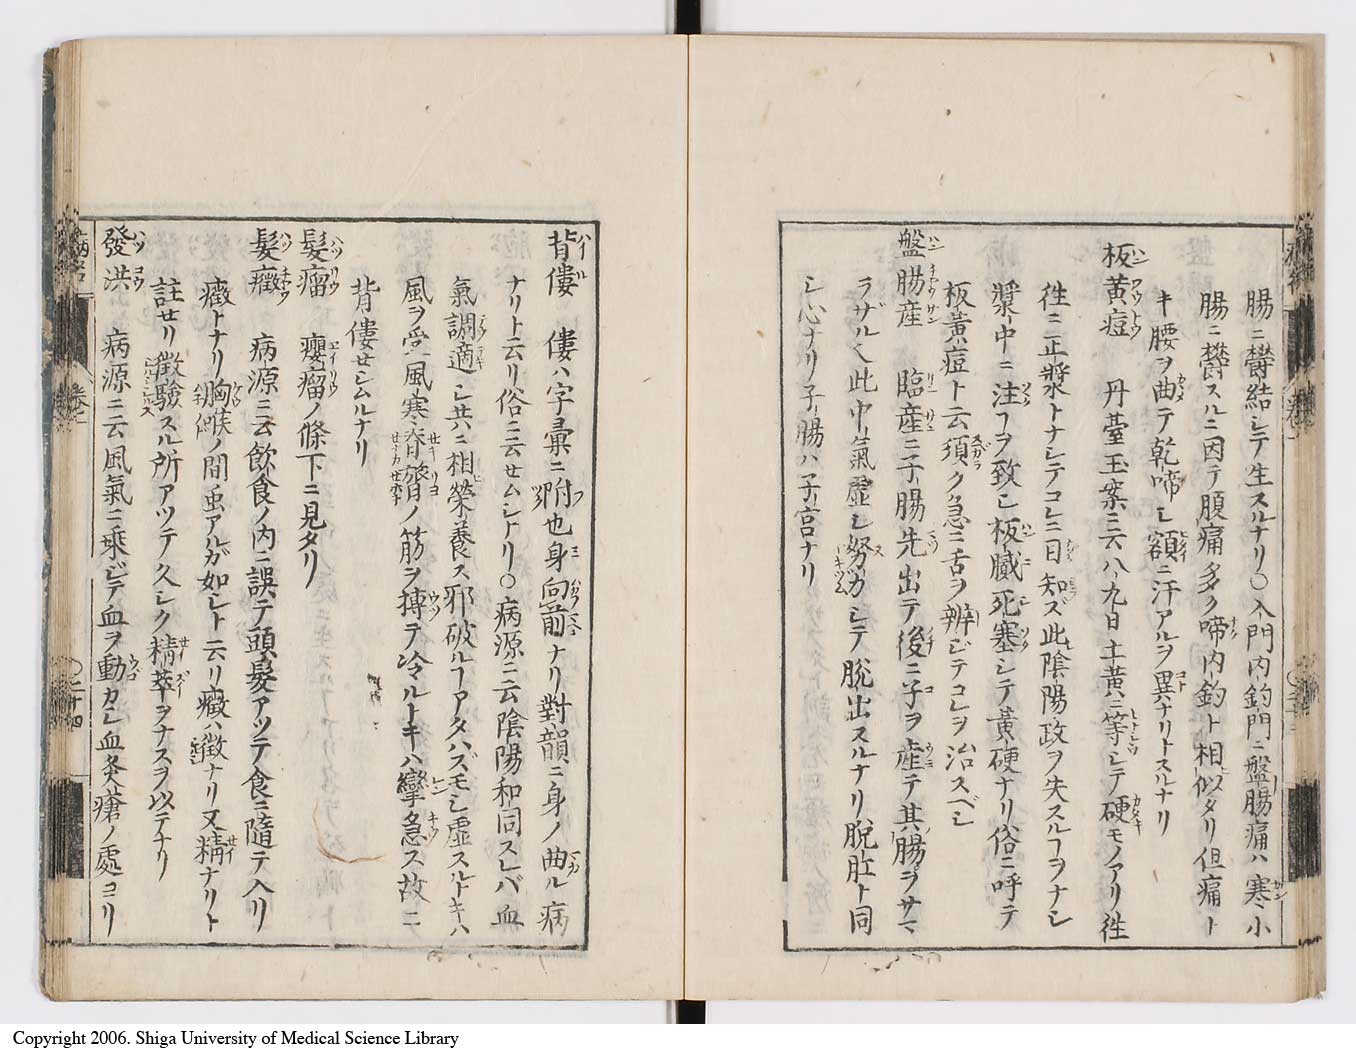 腸ニ欝結シテ生スルナリ〇入門内釣門ニ盤腸痛ハ寒小
腸ニ欝スルニ因テ腹痛多ク啼内釣ト相似タリ但痛ト
キ腰ヲ曲テ乾啼シ額ニ汗アルヲ異ナリトスルナリ
板黄痘 丹臺玉案ニ云八九日土黄ニ等シテ硬モノアリ徃
徃ニ正漿トナシテコレニ日知ズ此陰陽政ヲ失スルヿヲナシ
漿中ニ注フヲ致シ板膩死塞シテ黄硬ナリ俗ニ呼テ
板黄痘ト云須ク急ニ舌ヲ辨ジテコレヲ治スベシ
盤腸産 臨産ニ子腸先出テ後ニ子ヲ産テ其腸ヲサマ
ラザル也此中氣虚シ努力シテ脱出スルナリ脱肛ト同
シ心ナリ子腸ハ子宮ナリ
背僂 僂ハ字彙ニ附也身向前ナリ對韻ニ身ノ曲ル病
ナリト云リ俗ニ云せムシナリ〇病源ニ云陰陽和同スレバ血
氣調適シ共ニ相榮養ス邪破ルヿアタハズモシ虚スルトキハ
風ヲ受風寒脊膂ノ筋ヲ搏テ冷ルトキハ攣急ス故ニ
背僂せシムルナリ
髮瘤 癭瘤ノ條下ニ見タリ
髮癥 病源ニ云飲食ノ内ニ誤テ頭髮アツテ食ニ隨テ入リ
癥トナリ胸喉ノ間虫アルガ如シト云リ癥ハ徴ナリ又精ナリト
註せリ徴驗スル所アツテ久シク精萃ヲナスヲ以テナリ
發洪 病源ニ云風氣ニ乘ジテ血ヲ動カシ血灸瘡ノ處ヨリ
病名
卷一
〇二十四
Copyright 2006. Shiga University of Medical Science Library